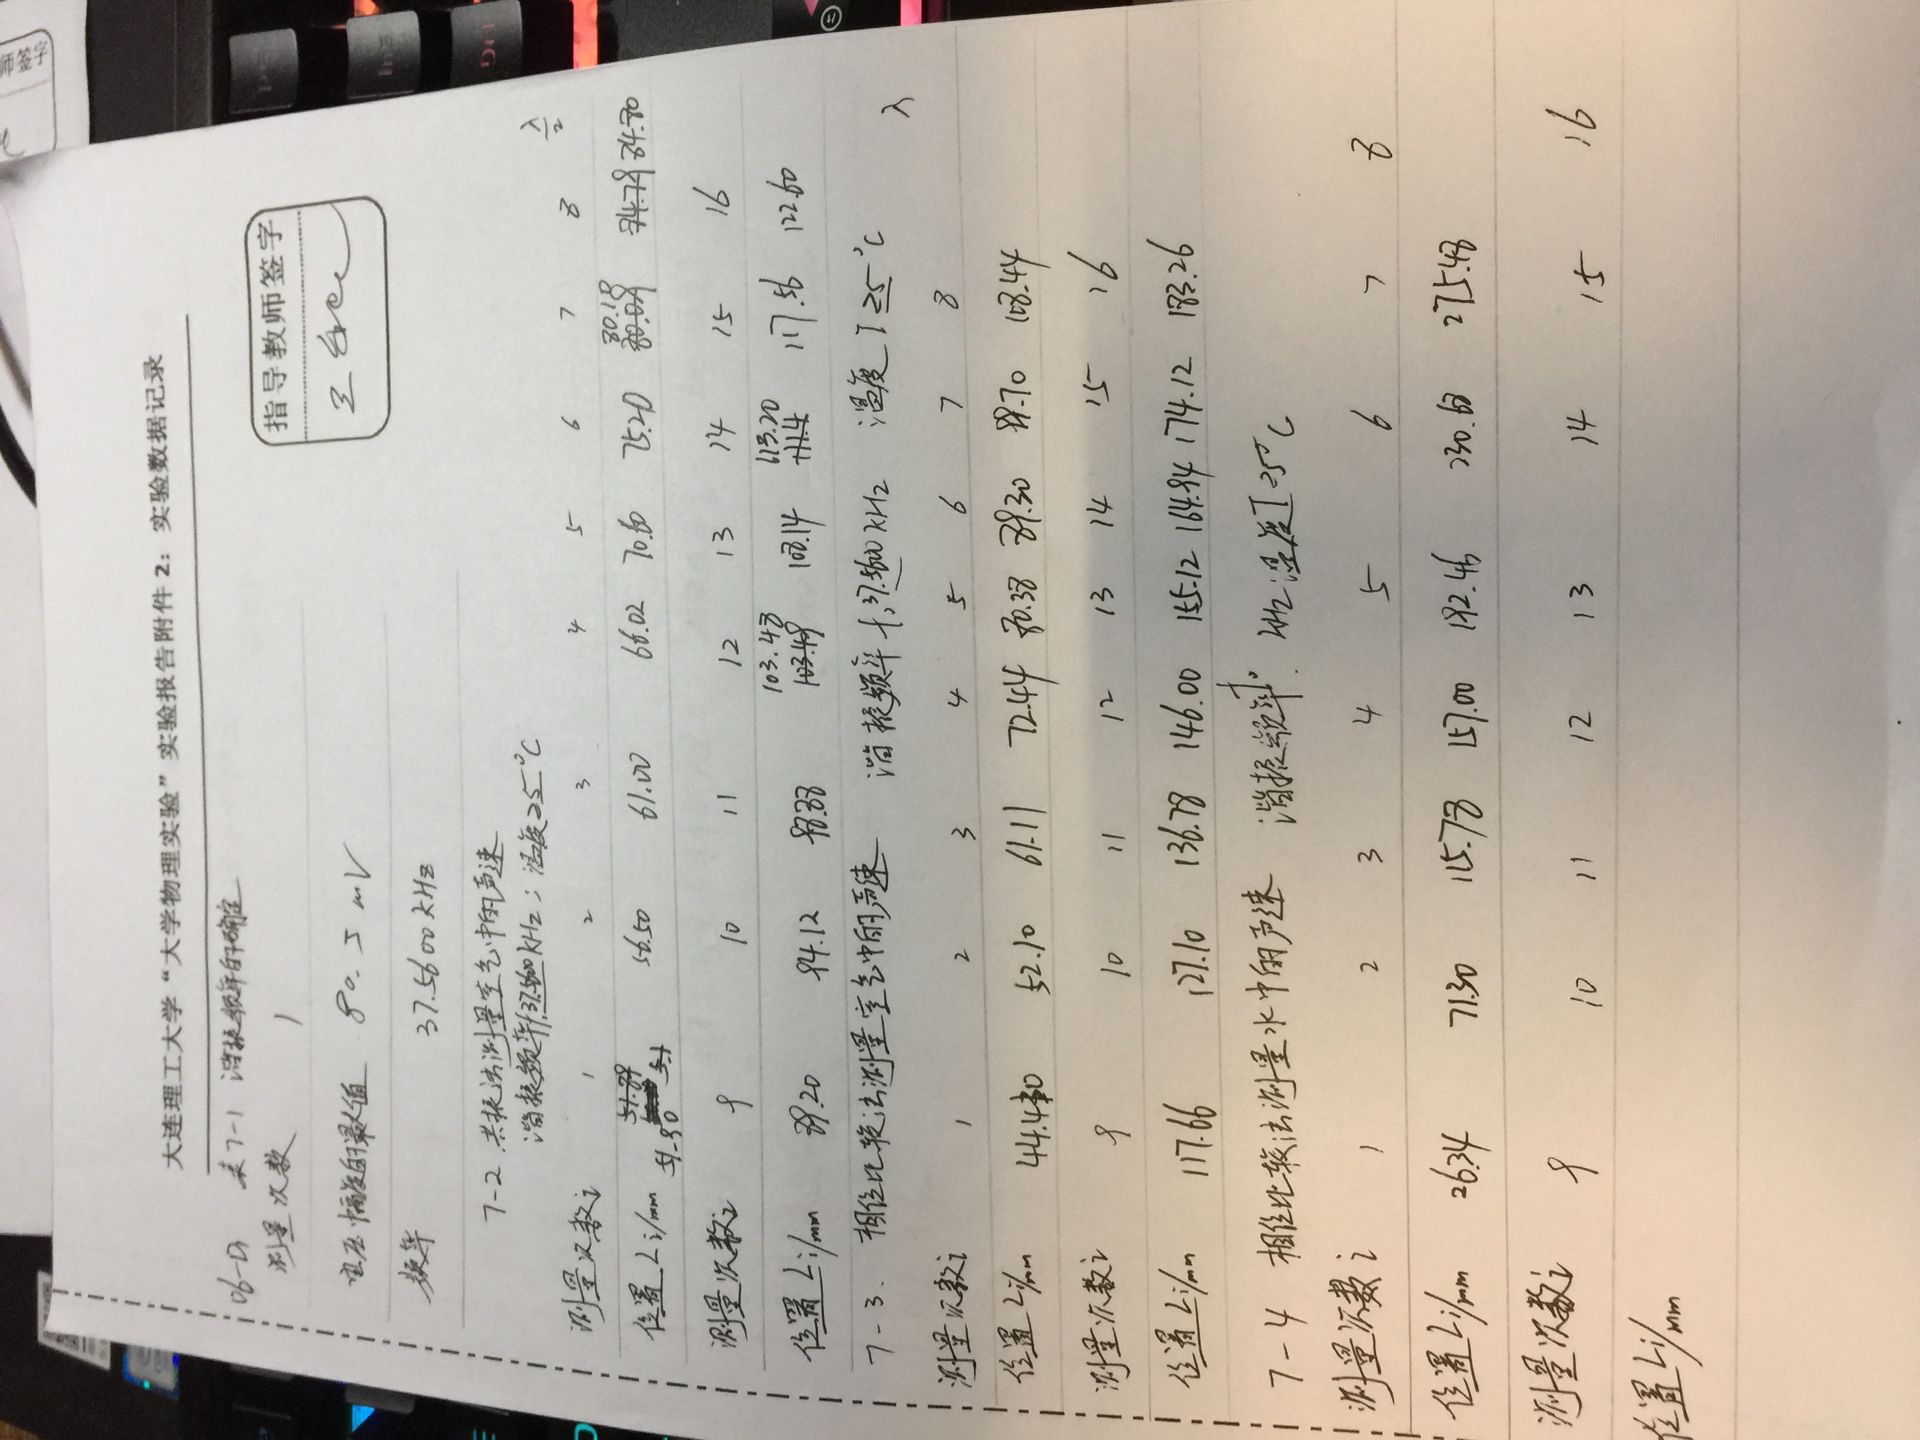 大连理工大学“大学物理实验”实验报告附件2：实验数据记录
06-D 表7-1 谐振频率的确定
指导教师签字
测量次数 1
电压幅度的最大值 80.5 mV
频率 37.5600 kHz
7-2 共振法测量空气中的声速
谐振频率f 37.5600 kHz；温度25°C
λ/2
测量次数i 1 2 3 4 5 6 7 8
51.89 80.18
位置Li/mm 51.90 56.50 61.00 66.02 70.60 75.20 80.09 84.79 84.80
测量次数i 9 10 11 12 13 14 15 16
103.48 113.20
位置Li/mm 89.20 94.12 98.88 103.49 108.14 111.4 117.56 122.60
7-3. 相位比较法测量空气中的声速 谐振频率f 37.5600 kHz 温度T 25°C
λ
测量次数i 1 2 3 4 5 6 7 8
位置Li/mm 44.40 52.10 61.11 72.44 80.38 89.30 99.70 108.44
测量次数i 9 10 11 12 13 14 15 16
位置Li/mm 117.66 127.10 136.78 146.00 155.12 164.94 174.12 183.26
7-4 相位比较法测量水中的声速 谐振频率f0 kHz 温度T 25°C
测量次数i 1 2 3 4 5 6 7 8
位置Li/mm 26.34 71.30 115.78 157.00 192.46 230.68 275.48
测量次数i 9 10 11 12 13 14 15 16
位置Li/mm